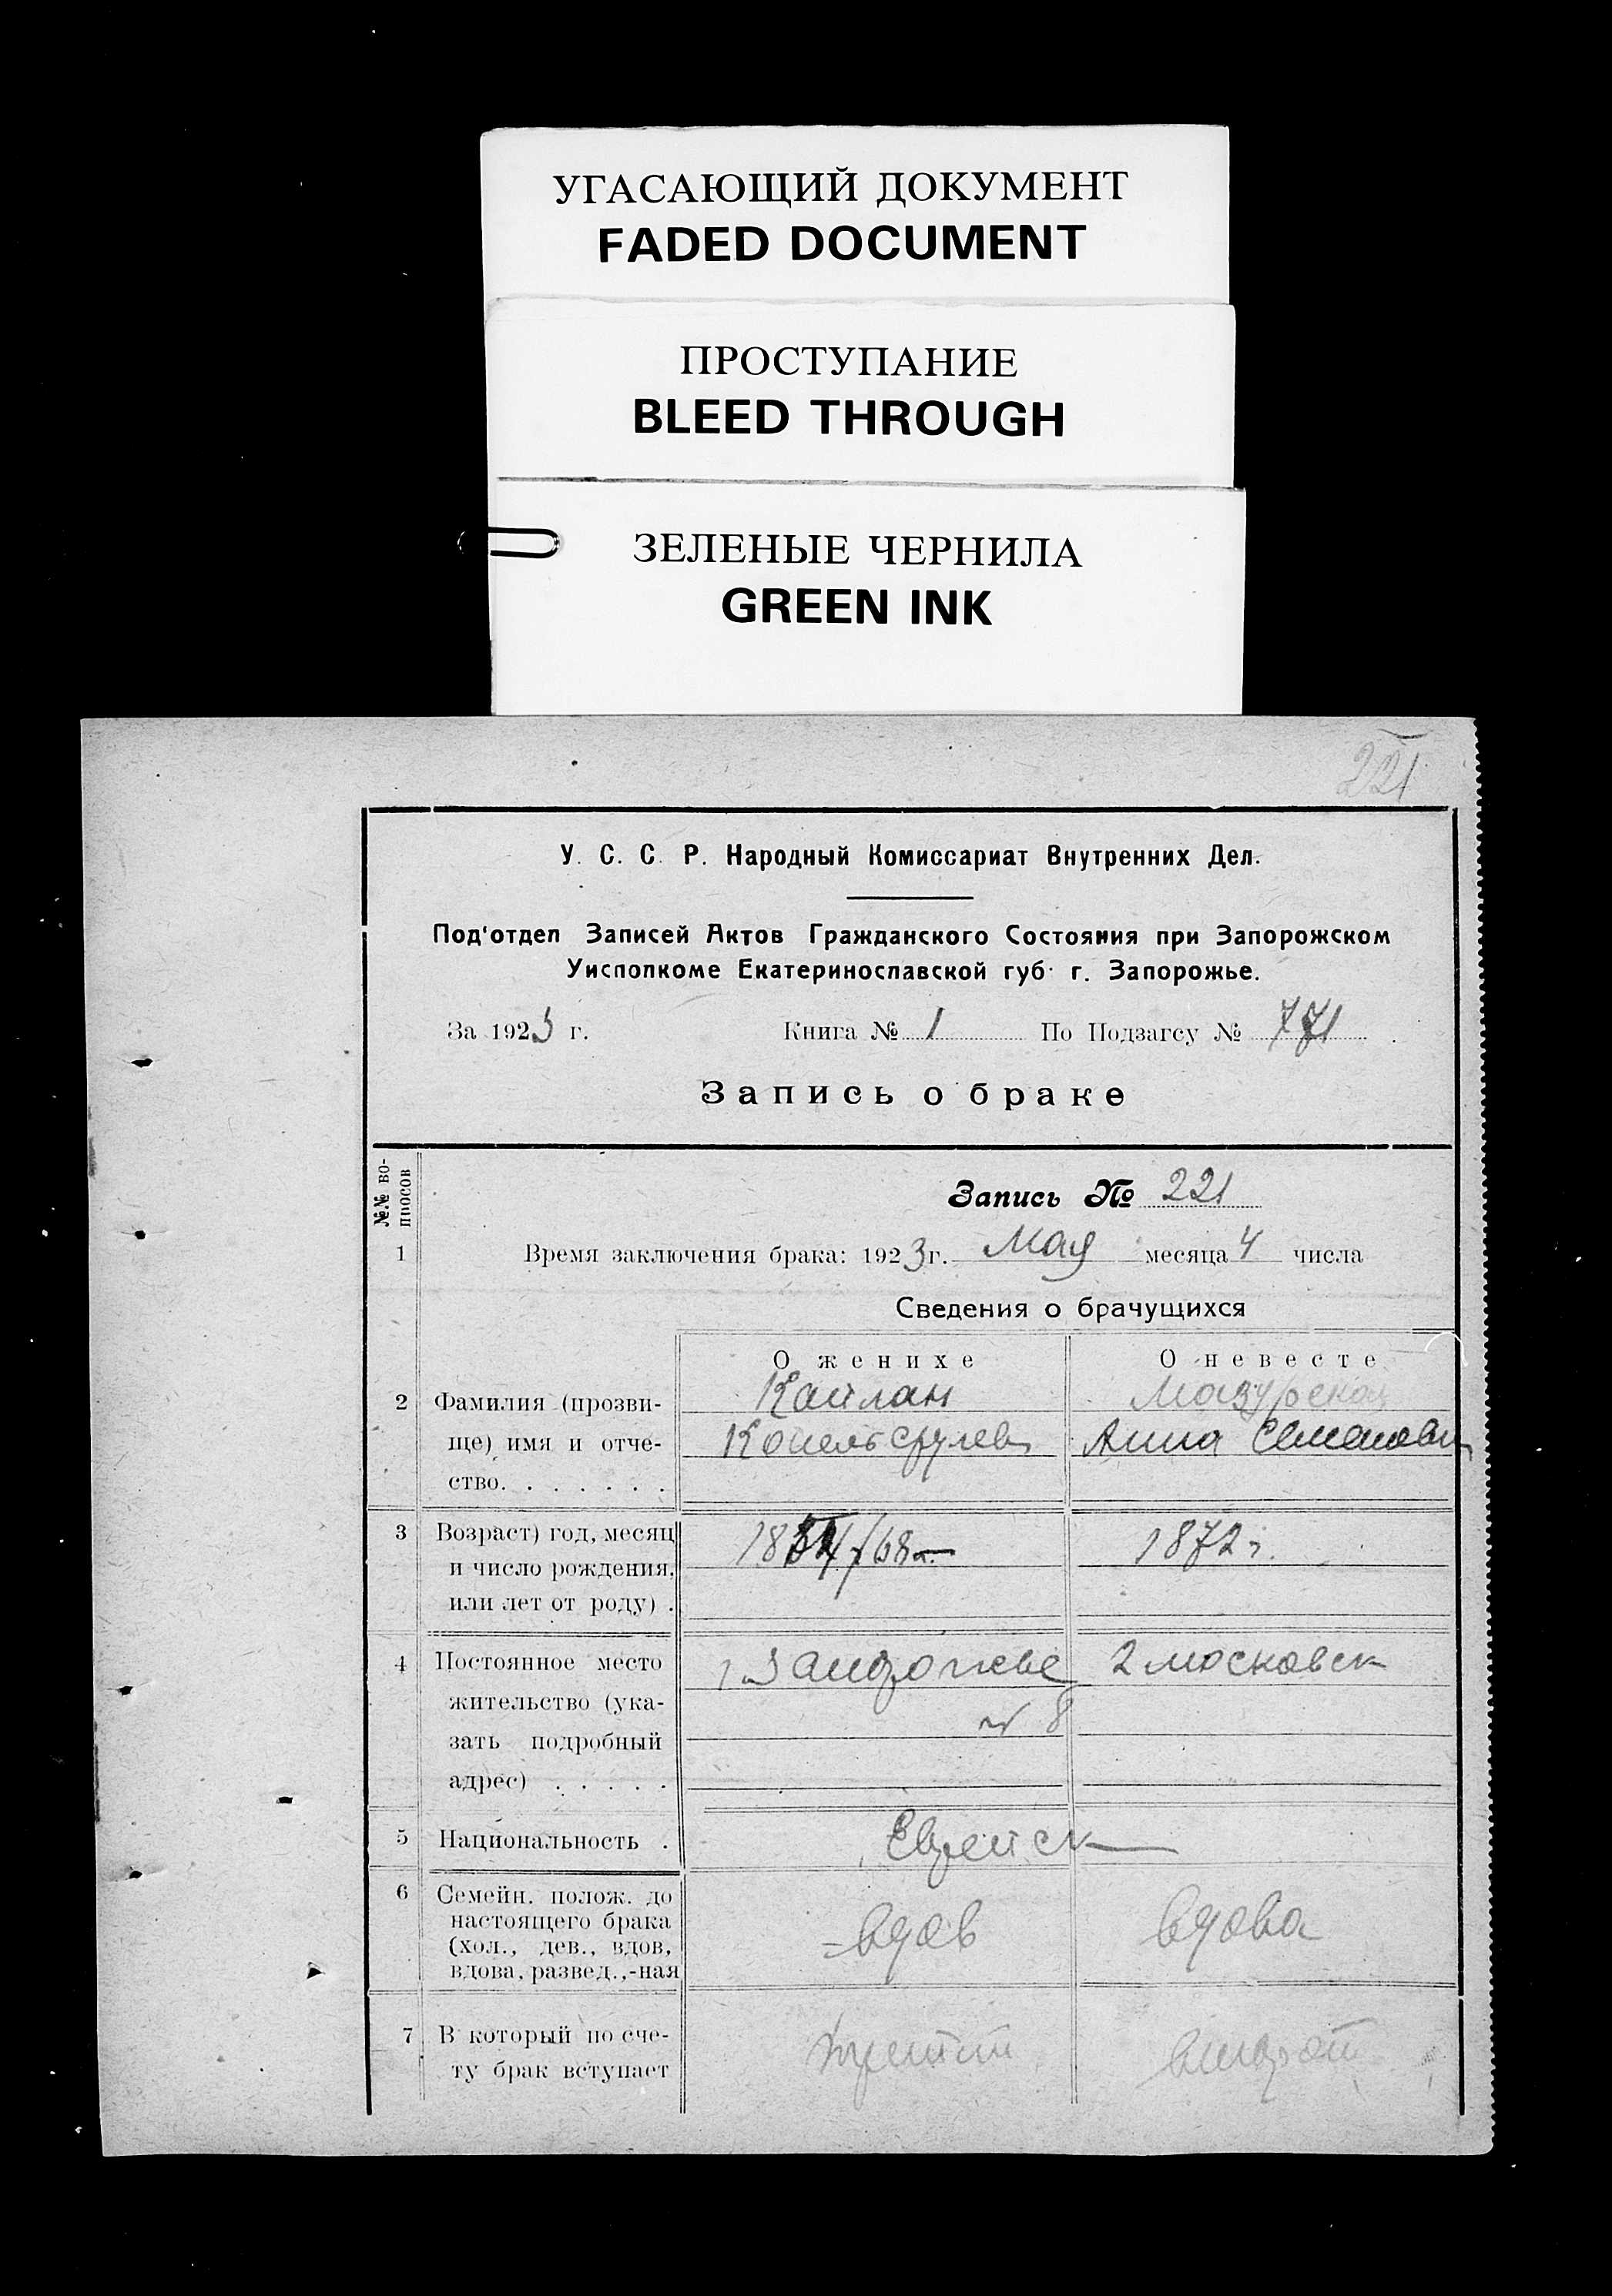 УГАСАЮЩИЙ ДОКУМЕНТ
FADED DOCUMENT
ПРОСТУПАНИЕ
BLEED THROUGH
ЗЕЛЕНЫЕ ЧЕРНИЛА
GREEN INK
221
У. С. С. Р. Народный Комиссариат Внутренних Дел.
Под'отдел Записей Актов Гражданского Состояния при Запорожском
Уисполкоме Екатеринославской губ. г. Запорожье.
За 1923 г. Книга № 1 По Подзагсу № 771
Запись о браке
№№ во-
просов
Запись № 221
1 Время заключения брака: 1923 г. Мая месяца 4 числа
Сведения о брачущихся
О женихе О невесте
2 Фамилия (прозви- Каплан Мазурская
ще) имя и отче- Копель Срулев Анна
ство. . . . . . .
3 Возраст) год, месяц 1872 г.
и число рождения,
или лет от роду) .
4 Постоянное место г Запорожье 2 московск
жительство (ука- № 8
зать подробный
адрес) . . . . .
5 Национальность . Еврейск
6 Семейн. полож. до
настоящего брака вдов вдова
(хол., дев., вдов,
вдова, развед.,-ная
7 В который по сче- третий второй
ту брак вступает